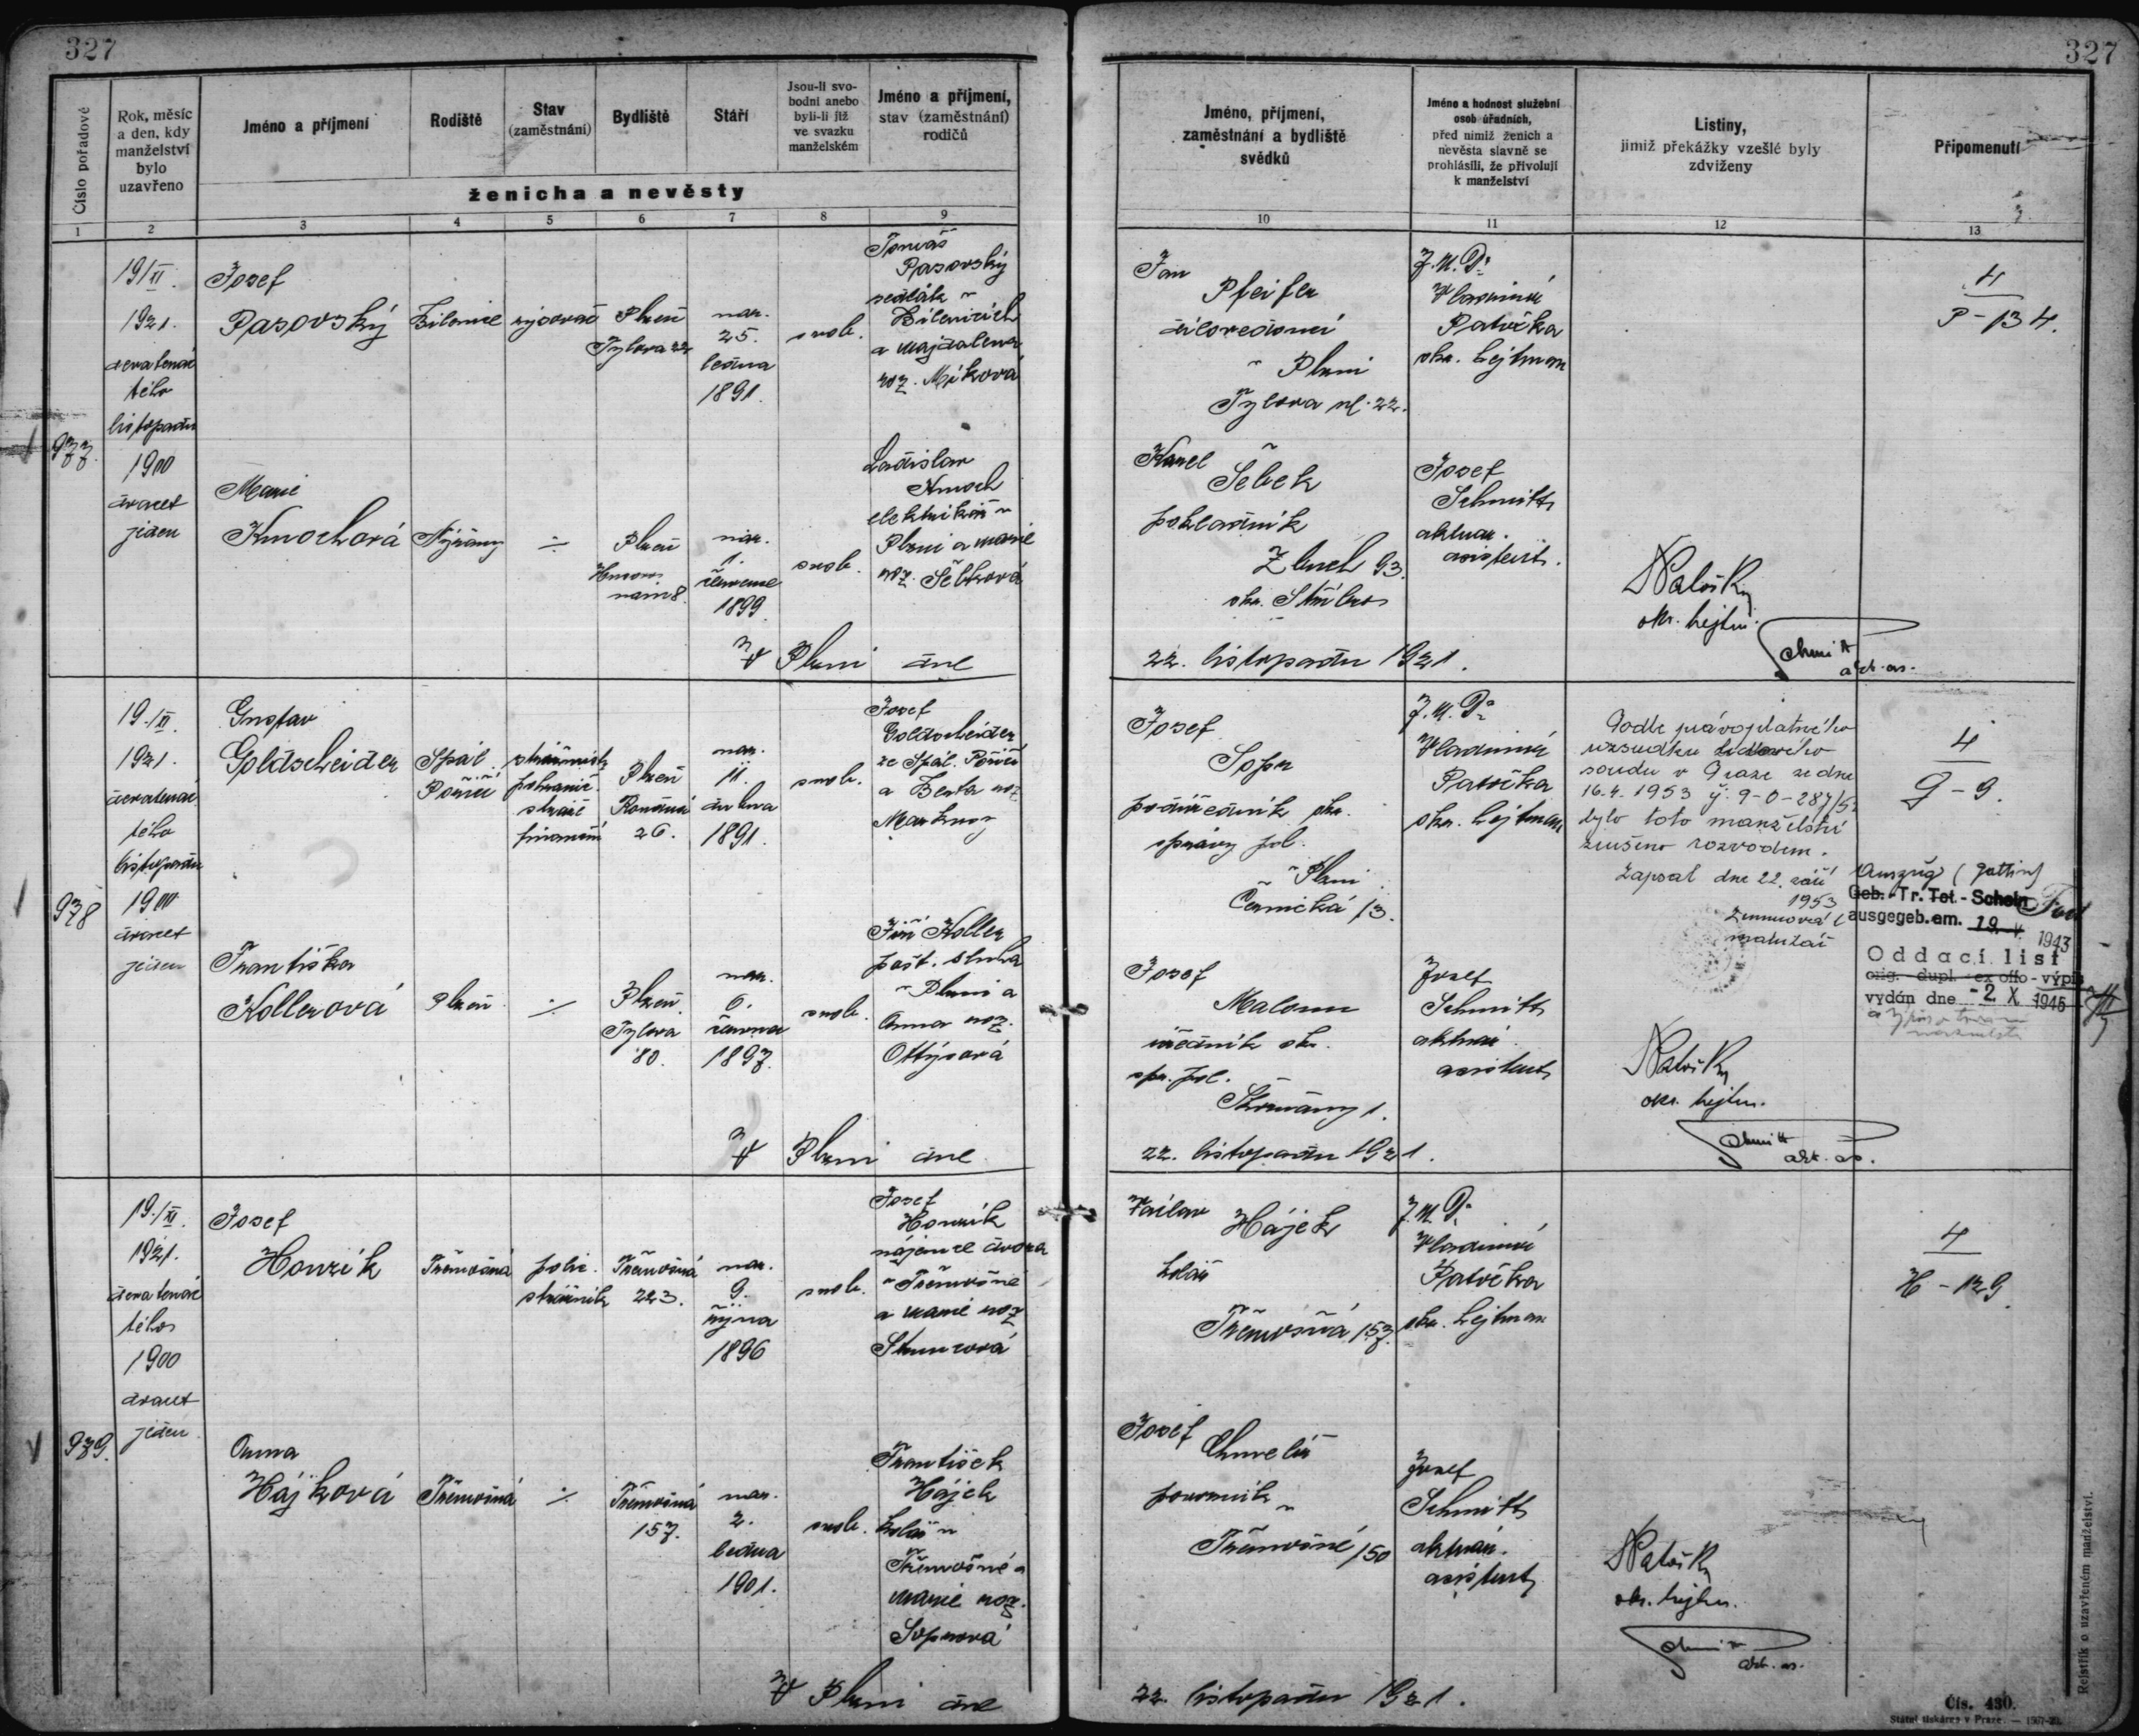 327
327
Číslo pořadové
Rok, měsíc
a den, kdy
manželství
bylo
uzavřeno
Jméno a příjmení
Rodiště
Stav
(zaměstnání)
Bydliště
Stáří
Jsou-li svo-
bodni anebo
byli-li již
ve svazku
manželském
Jméno a příjmení,
stav (zaměstnání)
rodičů
ženicha a nevěsty
Jméno, příjmení,
zaměstnání a bydliště
svědků
Jméno a hodnost služební
osob úřadních,
před nimiž ženich a
nevěsta slavně se
prohlásili, že přivolují
k manželství
Listiny,
jimiž překážky vzešlé byly
zdviženy
Připomenutí
1
2
3
4
5
6
7
8
9
10
11
12
13
977.
19/XI.
1921.
devatenác
tého
listopadu
1900
dvacet
jeden
Josef
Pasovský
Plzeň
Tylova 22
nar.
25.
ledna
1891.
svob.
Tomáš
Pasovský
sedlák v
a Majdalena
roz. Míková
Marie
Kmochová
Nýřany
÷
Plzeň
nar.
1.
července
1899.
svob.
Ladislav
Kmoch
elektrikář v
Plzni a Marie
roz. Šebková
Jan
Pfeifer
dílovedoucí
v Plzni
Tylova ul. 22.
Karel
Šebek
pokladník
Zbuch 93.
okr. Stříbro
J.U.Dr
Vladimír
Patočka
okr. hejtman
Josef
Schmitt
aktuár.
asistent.
4
P-134.
Patočka
okr. hejtm.
Schmitt
akt. as.
V Plzni dne
22. listopadu 1921.
978
19./XI.
1921.
devatenác
tého
listopadu
1900
dvacet
jeden
Gustav
Goldscheider
Spál.
Poříčí
strážmistr
pohranič.
stráž
finanční
Plzeň
26.
nar.
11.
dubna
1891.
svob.
Josef
Goldscheider
ze Spál. Poříčí
a Berta roz.
Františka
Kollerová
Plzeň
÷
Plzeň
Tylova
80.
nar.
6.
června
1897.
svob.
Jiří Koller
pošt. sluha
v Plzni a
Anna roz.
Ottýsová
Josef
Sopr
podúředník okr.
správy pol.
v Plzni
Černická 13.
Josef
úředník okr.
spr. pol.
Skvrňany 1.
J.U.Dr
Vladimír
Patočka
okr. hejtman
Josef
Schmitt
aktuár.
asistent
Podle právoplatného
rozsudku lidového
soudu v Praze ze dne
16.4.1953 č. 9-0-287/52
bylo toto manželství
zrušeno rozvodem.
Zapsal dne 22. září
1953
matrikář
4
G-9.
Auszug
Geb.-Tr.Tot.-Schein
ausgegeb. am. 19. V. 1943
Oddací list
orig. dupl. ex offo - výpis
vydán dne -2 X 1945
Patočka
okr. hejtm.
Schmitt
akt. as.
V Plzni dne
22. listopadu 1921.
979.
19./XI.
1921.
devatenác
tého
1900
dvacet
jeden
Josef
Honzík
Třemošná
polic.
strážník
Třemošná
223.
nar.
9.
října
1896
svob.
Josef
Honzík
nájemce dvora
v Třemošné
a Marie roz.
Anna
Hájková
Třemošná
÷
Třemošná
157.
nar.
2.
ledna
1901.
svob.
František
Hájek
kolář v
Třemošné a
Marie roz.
Soprová
Václav
Hájek
kolář
Třemošná 157.
Josef
Chmelíř
v
Třemošné 150
J.U.Dr
Vladimír
Patočka
okr. hejtman
Josef
Schmitt
aktuár.
asistent
4
H-129
Patočka
okr. hejtm.
Schmitt
akt. as.
V Plzni dne
22. listopadu 1921.
Rejstřík o uzavřeném manželství.
Čís. 430.
Státní tiskárna v Praze.